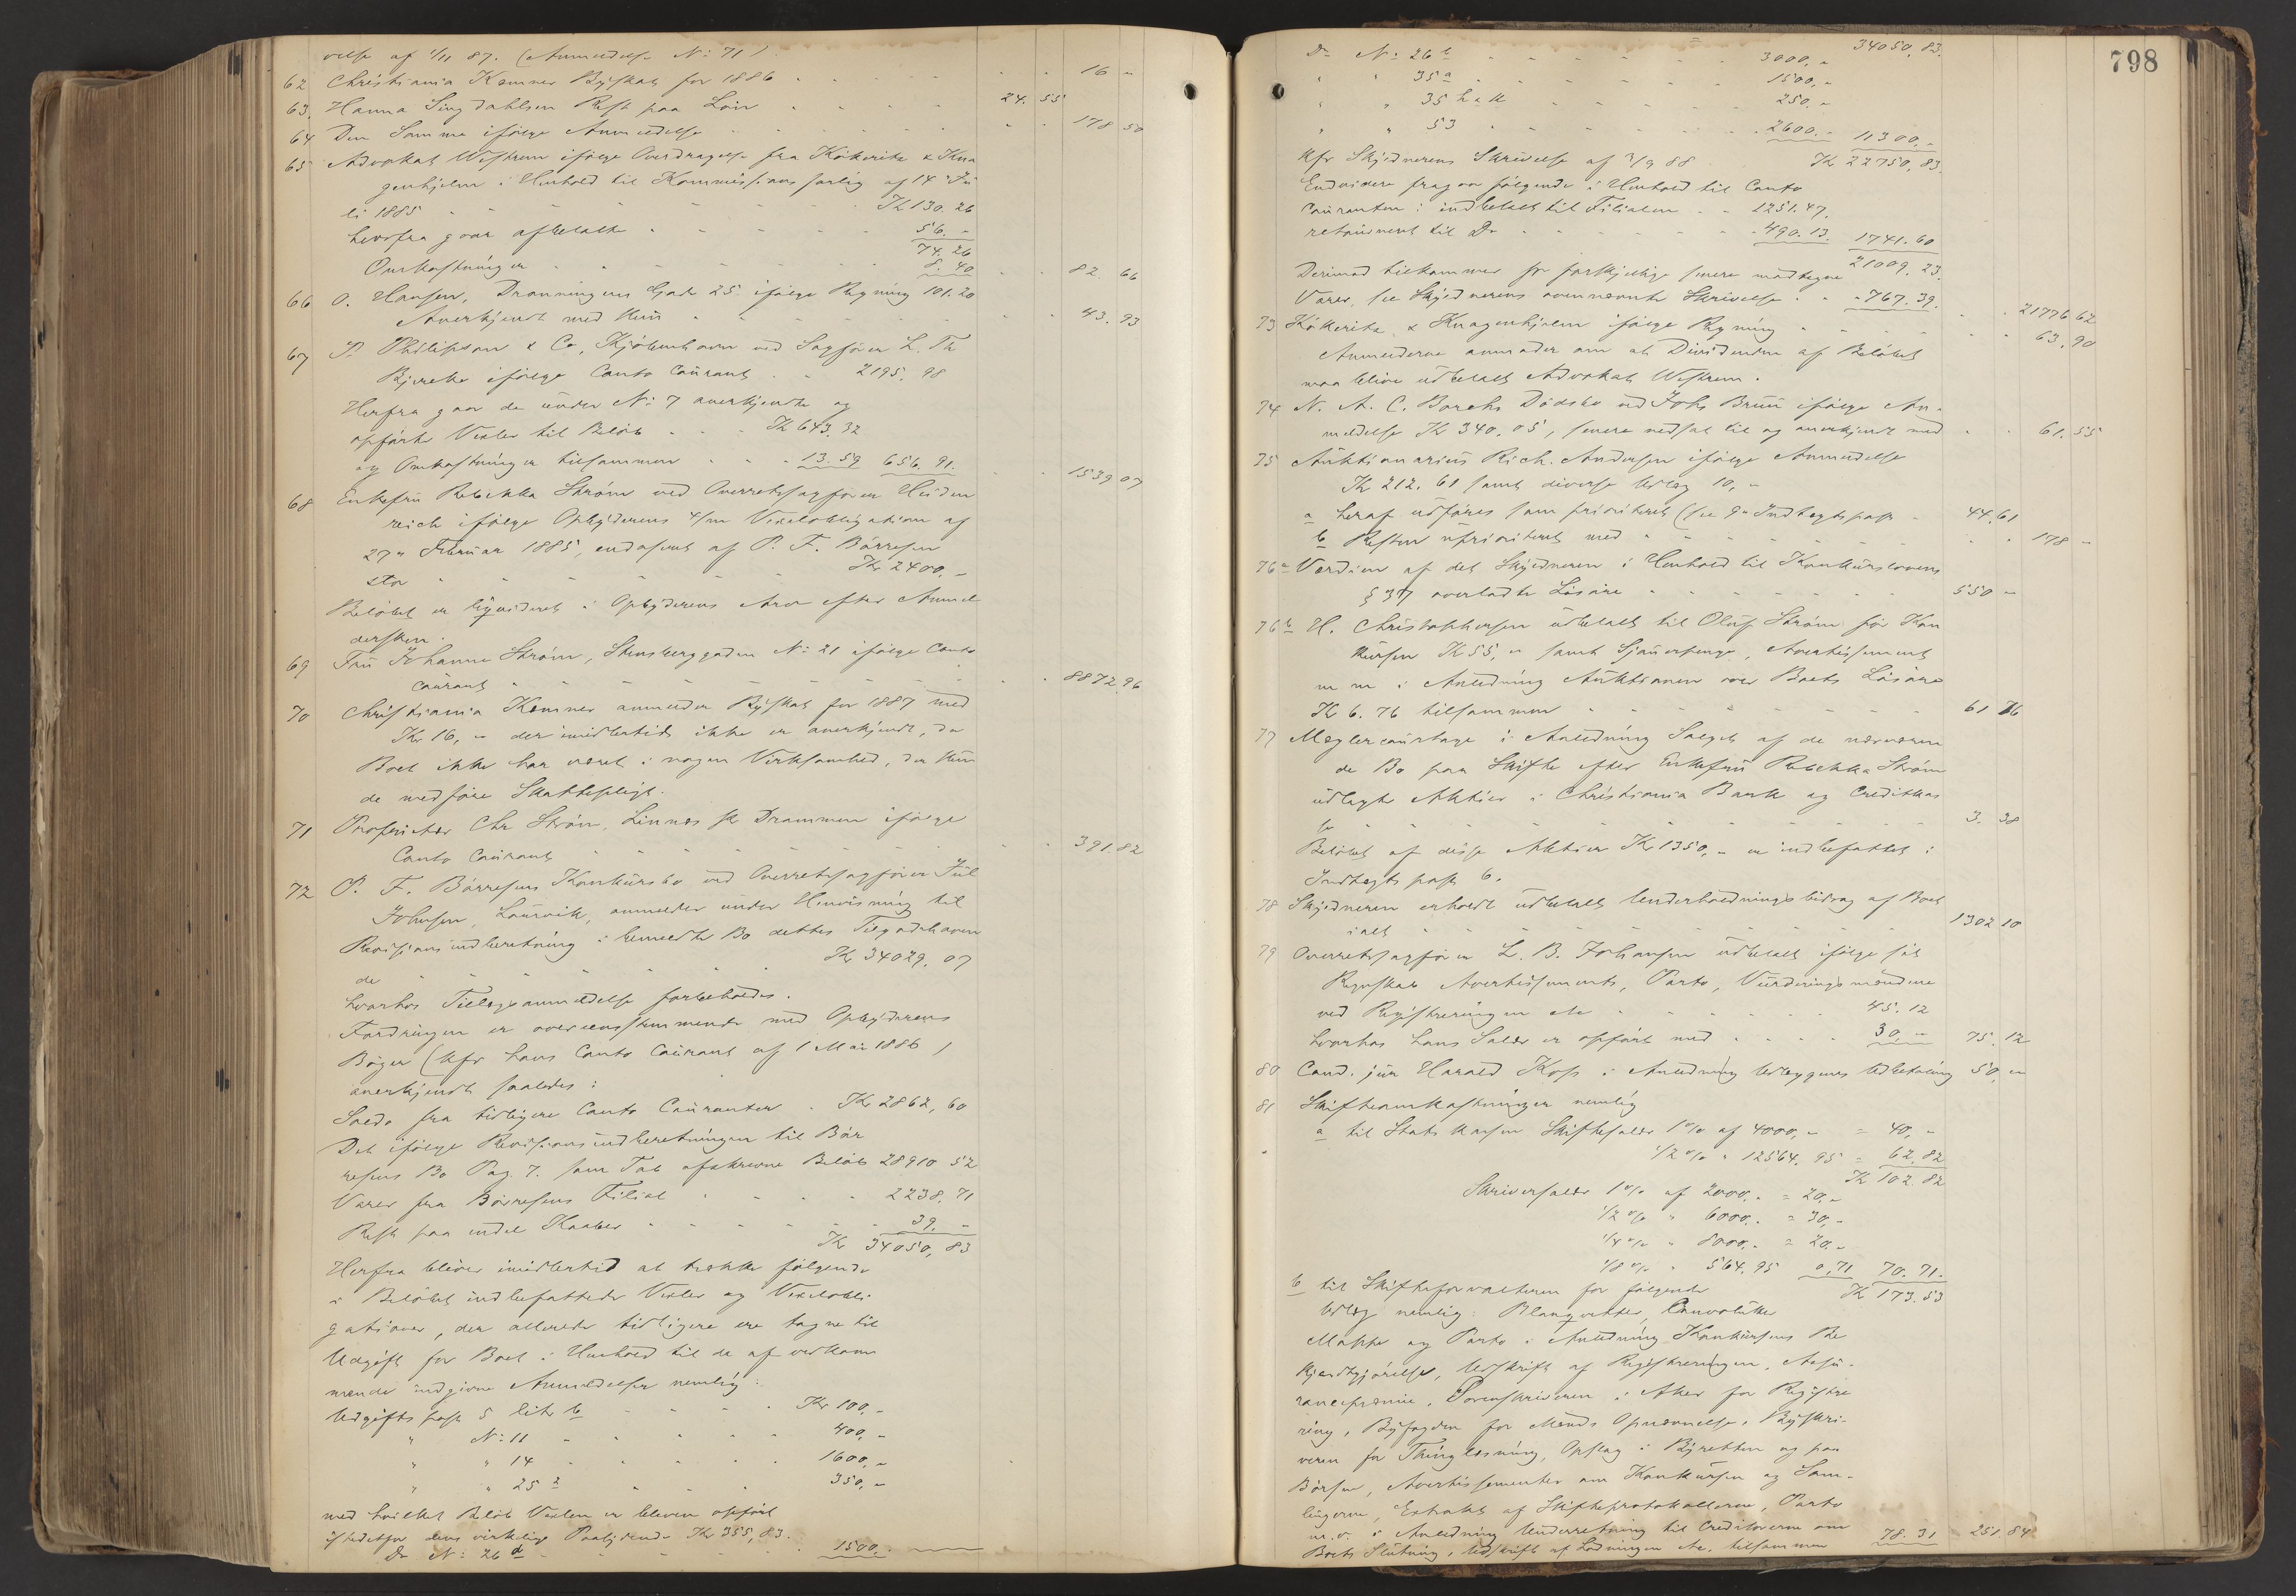 velse af 1/11 87. (Anmeldelse No: 71)
62 Christiania Kemner Byskat for 1886 16 -
63. Hanna Sing Dahlsen Rest paa Løn 24. 55
64 Den Samme ifølge Anmeldelse 178 50
65 Advokat Westrum ifølge Overdragelse fra Kökeritz & Kna
genhjelm i Henhold til Kommissionsforlig af 14de Ju
li 1885 Kr 130. 26
herfra gaar afbetalt 56. -
74. 26
Omkostninger 8. 40 82. 66
66 O. Hansen, Dronningens Gade 25 ifølge Regning 101. 20
Anerkjendt med kun 43. 93
67 P. Philipson & Co, Kjøbenhavn ved Sagfører L. Th
Bjercke ifølge Conto Courant 2195. 98
Herfra gaar de under No: 7 anerkjendte og
opførte Vexler til Beløb Kr 643. 32
og Omkostninger tilsammen 13. 59 656. 91. 1539 07
68 Enkefru Rebekka Strøm ved Overretssagfører Heiden
reich ifølge Opbyderens 4/m Vexelobligation af
27de Februar 1885, endosseret af P. F. Børresen
stor Kr 2400, -
Beløbet er liqvideret i Opbyderens Arv efter Anmel
dersken.
69 Fru Johanne Strøm, Stensberggaden No: 21 ifølge Conto
Courant 8872. 96
70 Christiania Kemner anmelder Byskat for 1887 med
Kr 16, - der imidlertid ikke er anerkjendt, da
Boet ikke har været i nogen Virksomhed, der kun
de medføre Skattepligt.
71 Proprietær Chr Strøm, Linnes pr Drammen ifølge
Conto Courant 391. 82
72 P. F. Børresens Konkursbo ved Overretssagfører Jul
Johnsen, Laurvik, anmelder under Henvisning til
Revisionsindberetning i bemeldte Bo dettes Tilgodehaven
de Kr 34029. 07
hvorhos Tillægsanmeldelse forbeholdes.
Fordringen er overensstemmende med Opbyderens
Bøger (kfr hans Conto Courant af 1 Mai 1886)
anerkjendt saaledes:
Saldo fra tidligere Conto Couranter Kr 2862, 60
Det ifølge Revisionsindberetningen til Bør
resens Bo Pag. 7. som Tab afskrevne Beløb 28910 52
Varer fra Børresens Filial 2238. 71
Rest paa endel Kaaber 39. -
Kr 34050, 83
Herfra bliver imidlertid at trække følgende
i Beløbet indbefattede Vexler og Vexelobli
gationer, der allerede tidligere ere tagne til
Udgift for Boet i Henhold til de af vedkom
mende indgivne Anmeldelser nemlig:
Udgifts post 5 litr b Kr 100, -
" No: 11 400, -
" " 14 1600, -
" " 25 a 350, -
med hvilket Beløb Vexlen er bleven opført
istedetfor dens virkelige Paalydende Kr 355, 83.
Do No: 26 d 1500. -
798
34050, 83.
Do No: 26 b 3000, -
" " 35 a 1500, -
" " 35 h & k 250. -
" " 53 2600. - 11300, -
Kfr Skyldnerens Skrivelse af 3/9 88 Kr 22750, 83.
Endvidere fragaar følgende i Henhold til Conto
Couranten: indbetalt til Filialen 1251. 47.
retourneret til Do 490. 13. 1741. 60
21009, 23.
Derimod tilkommer for forskjellige senere modtagne
Varer, see Skyldnerens ovennævnte Skrivelse 767. 39. 21776 62
73 Kökeritz & Knagenhjelm ifølge Regning 63. 90
Anmelderne anmoder om at Dividenden af Beløbet
maa blive udbetalt Advokat Westrum.
74 N. A. C. Borchs Dødsbo ved Johs Bruun ifølge An-
meldelse Kr 340. 05, senere nedsat til og anerkjendt med 61. 55
75 Auktionarius Rich. Andersen ifølge Anmeldelse
Kr 212. 61 samt diverse Udlæg 10, -
a heraf udføres som prioriteret (see 9de Indtægtspost 44. 61
b Resten uprioriteret med 178 -
76 a Værdien af det Skyldneren i Henhold til Konkurslovens
§ 37 overladte Løsøre 550 -
76 b H. Christophersen udbetalt til Oluf Strøm før Kon
kursen Kr 55, - samt Sjauerpenge, Avertissement
m m i Anledning Auktionen over Boets Løsøre
Kr 6. 76 tilsammen 61 76
77 Mæglercourtage i Anledning Salget af de nærværen
de Bo paa Skifte efter Enkefru Rebekka Strøm
udlagte Aktier i Christiania Bank og Creditkas
se 3. 38
Beløbet af disse Aktier Kr 1350, - er indbefattet i
Indtægts post 6.
78 Skyldneren erholdt udbetalt Underholdningsbidrag af Boet
ialt 1302 10
79 Overretssagfører L. B. Johansen udbetalt ifølge sit
Regnskab Avertissements, Porto, Vurderingsmændene
ved Registreringen etc 45. 12
hvorhos hans Salær er opført med 30, - 75. 12
80 Cand. jur Harald Koss i Anledning Udlæggenes Udbetaling 50, -
81 Skifteomkostninger nemlig
a til Stats kassen Skiftesalær 1 % af 4000, - = 40, -
1/2 % " 12564. 95 = 62. 82
Kr 102. 82
Skriversalær 1 % af 2000. - = 20, -
1/2 % " 6000. - = 30, -
1/4 % " 8000. - = 20. -
1/8 % " 564. 95 0,71 70. 71.
Kr 173. 53
b til Skifteforvalteren for følgende
Udlæg nemlig: Blanqvetter, Convolutter
Mappe og Porto i Anledning Konkursens Be
kjendtgjørelse, Udskrift af Registreringen, Assu-
rancepræmie, Sorenskriveren i Aker for Registre
ring, Byfogden for Mænds Opnævnelse, Byskri-
veren for Thinglæsning, Opslag i Byretten og paa
Børsen, Avertissementer om Konkursen og Sam-
lingerne, Extrakt af Skifteprotokollerne, Porto
m. v. i Anledning Underretning til Creditorerne om
Boets Slutning, Udskrift af Lodningen etc. tilsammen 78. 31 251. 84